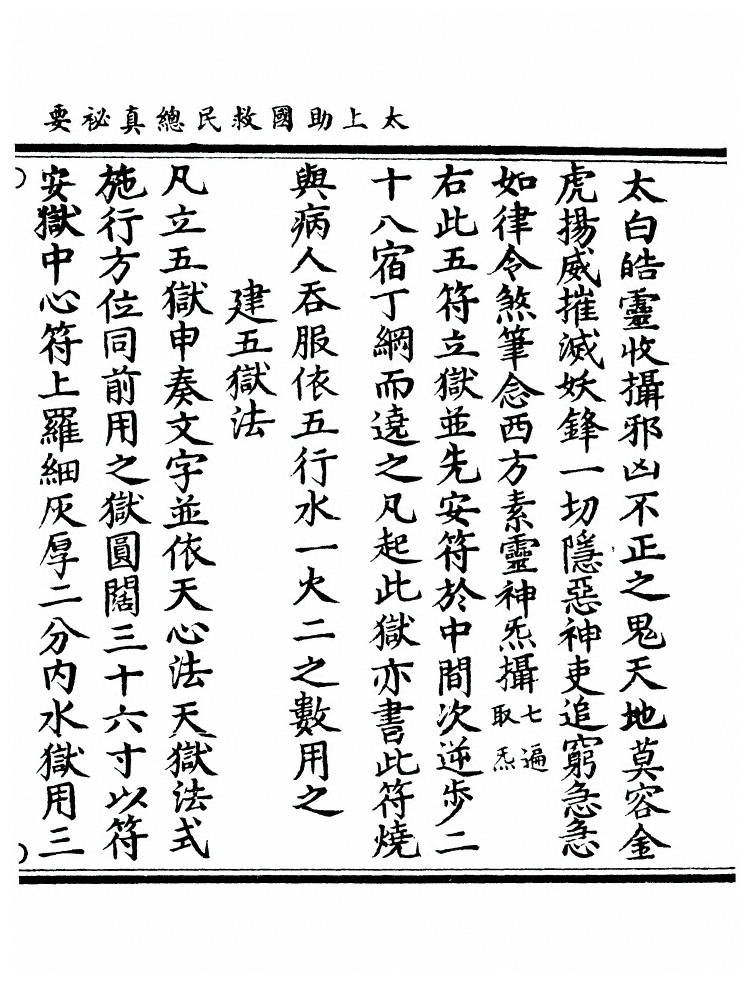 太上助國救民總真祕要
太白皓靈收攝邪凶不正之鬼天地莫容金
虎揚威摧滅妖鋒一切隱惡神吏追窮急急
如律令煞筆念西方素靈神炁攝七遍取炁
右此五符立獄並先安符於中間次逆步二
十八宿丁綱而遶之凡起此獄亦書此符燒
與病人吞服依五行水一火二之數用之
建五獄法
凡立五獄申奏文字並依天心法天獄法式
施行方位同前用之獄圓闊三十六寸以符
安獄中心符上羅細灰厚二分內水獄用三